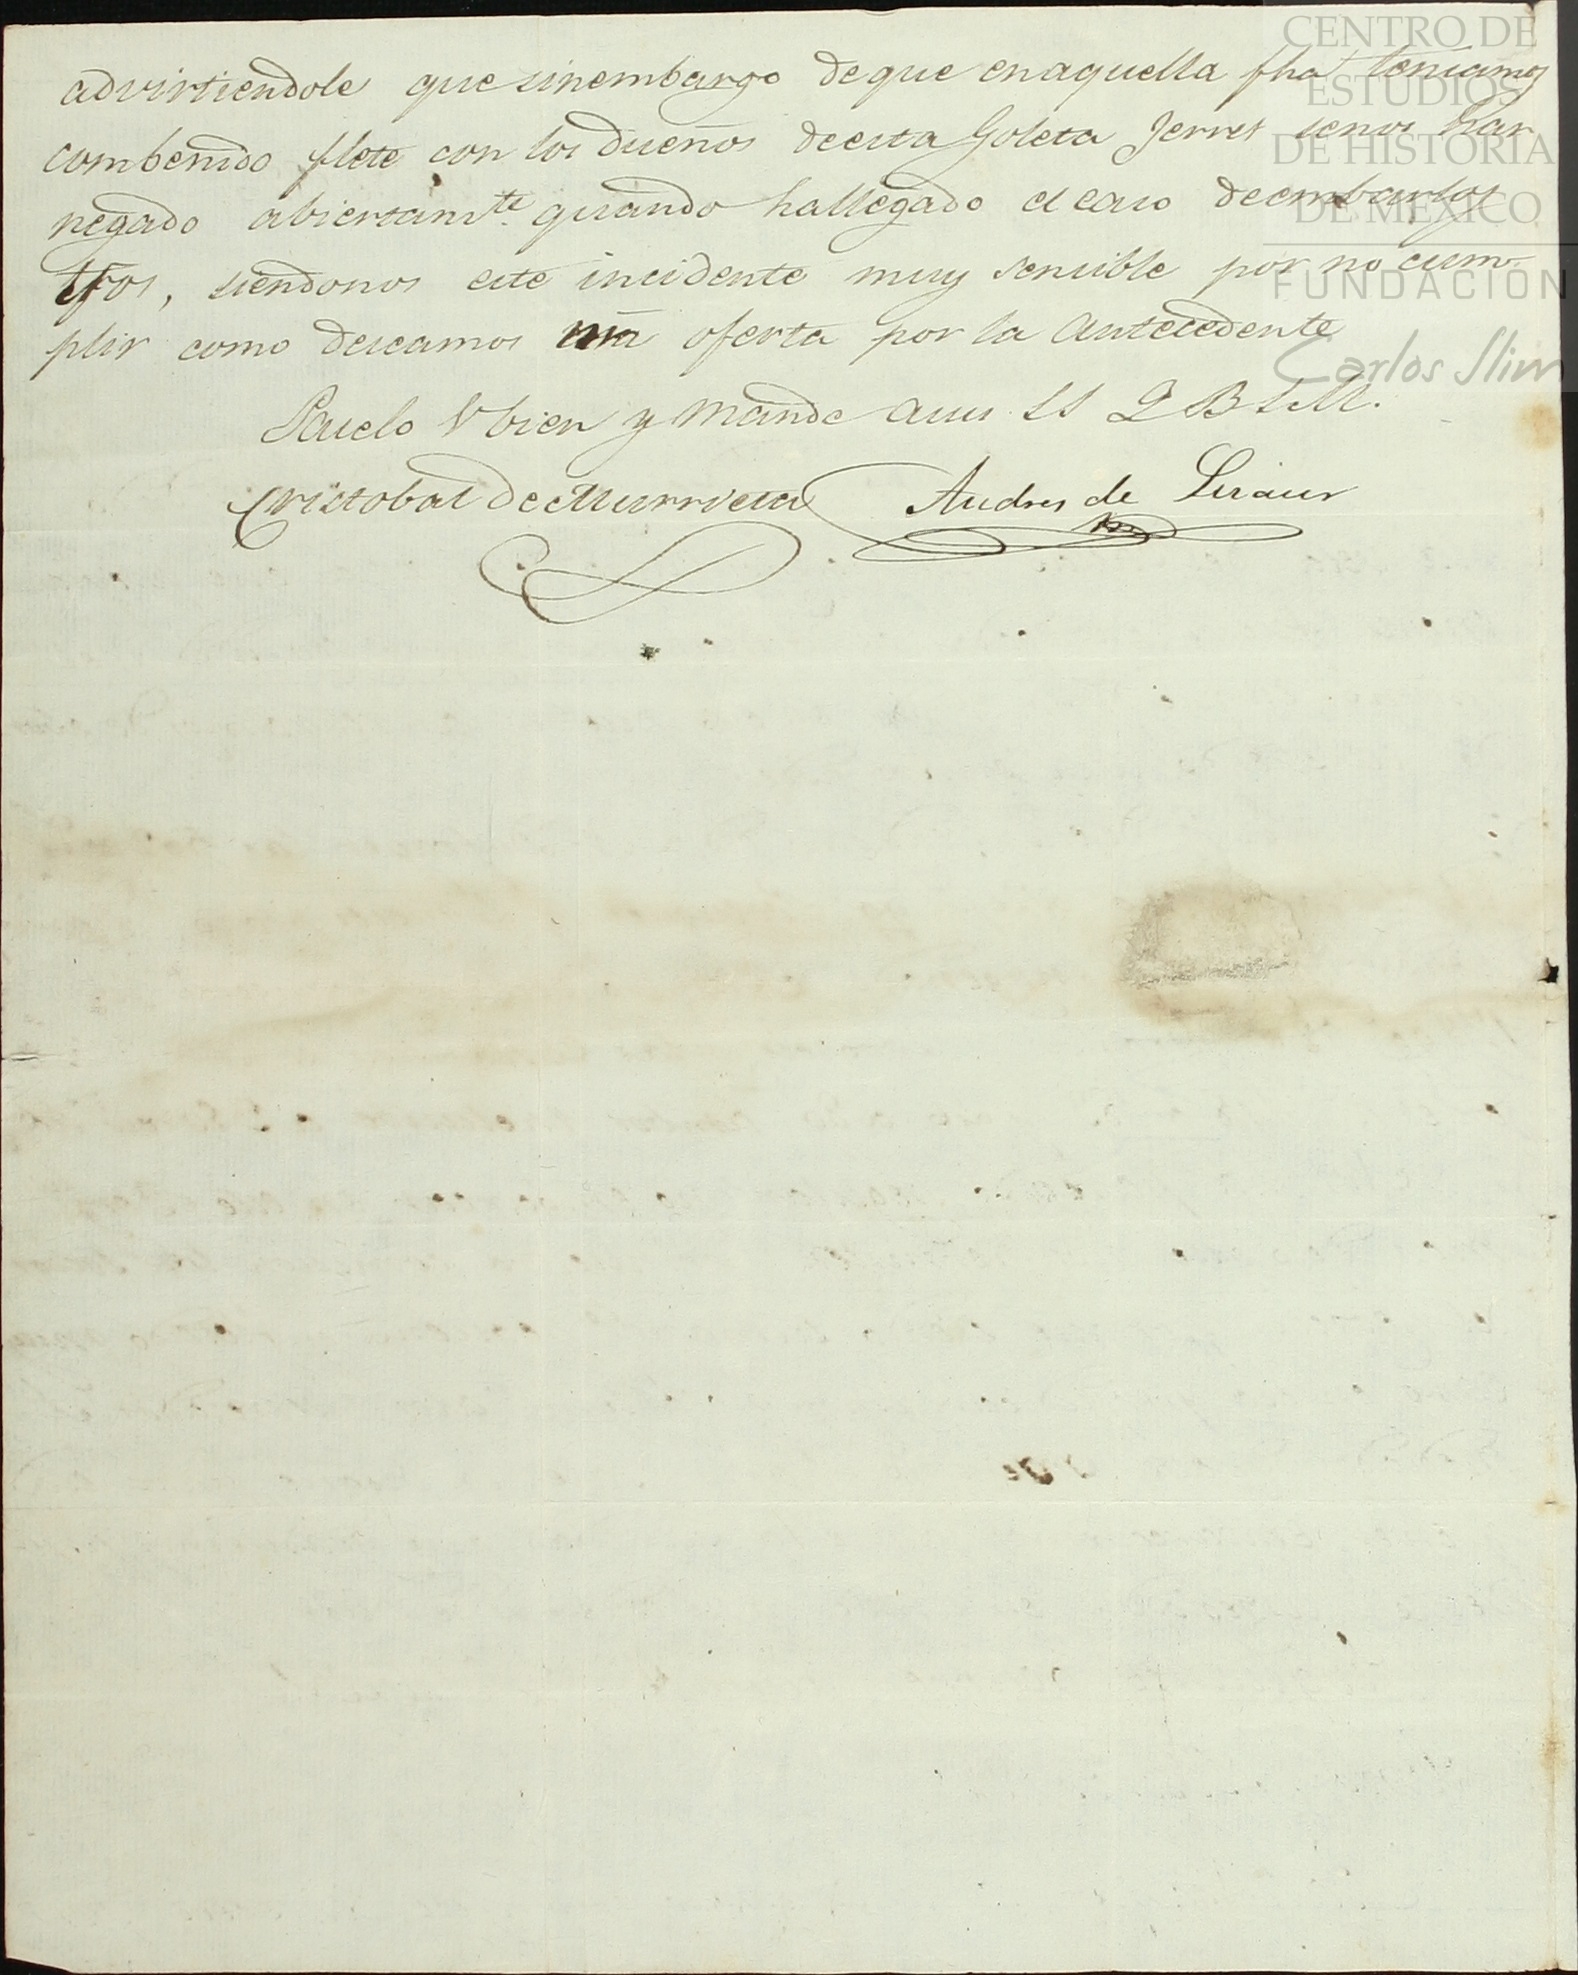 advirtiendole que sinembargo deque enaquella fha teniamos
combenido flete con los dueños deesta Goleta Jerret senos han
negado abiertamte. quando hallegado el caso deembarlos
tfos, siendonos este incidente muy sensible por no cum-
plir como deseamos nra oferta por la antecedente
Pauelo V bien y mande asus SS Q B S M.
Cristobal de Murrieta Andres de
CENTRO DE
ESTUDIOS
DE HISTORIA
DE MÉXICO
FUNDACIÓN
Carlos Slim